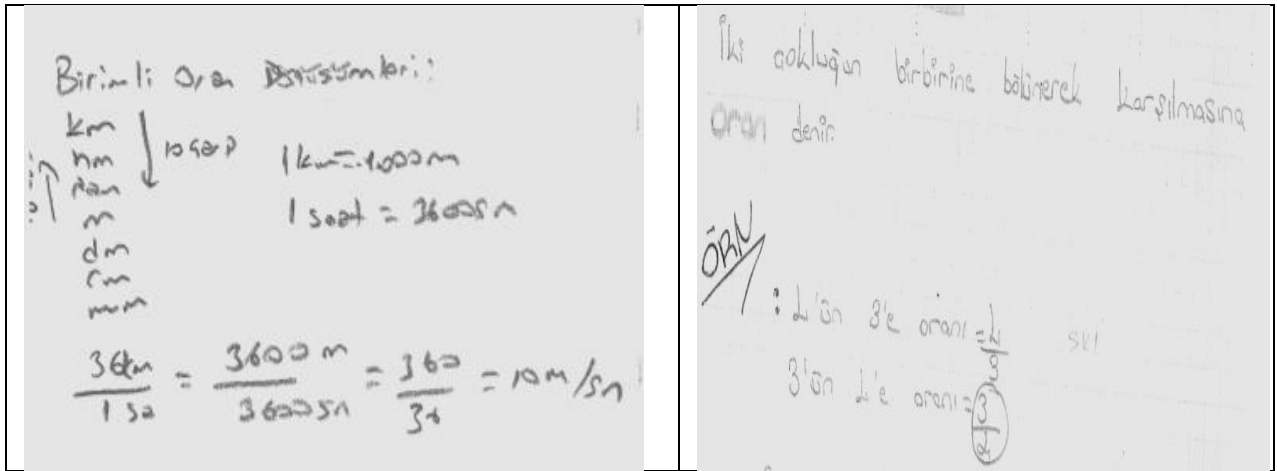 Birimli Oran Dönüşümleri:
km
hm
dam
m
dm
cm
mm
1 km = 1000 m
1 saat = 3600 sn
36km / 1 sa = 3600 m / 3600 sn = 360 / 36 = 10 m/sn
İki çokluğun birbirine bölünerek karşılmasına
oran denir.
ÖRN
: 4'ün 3'e oranı = 4/3
3'ün 4'e oranı = 3/4